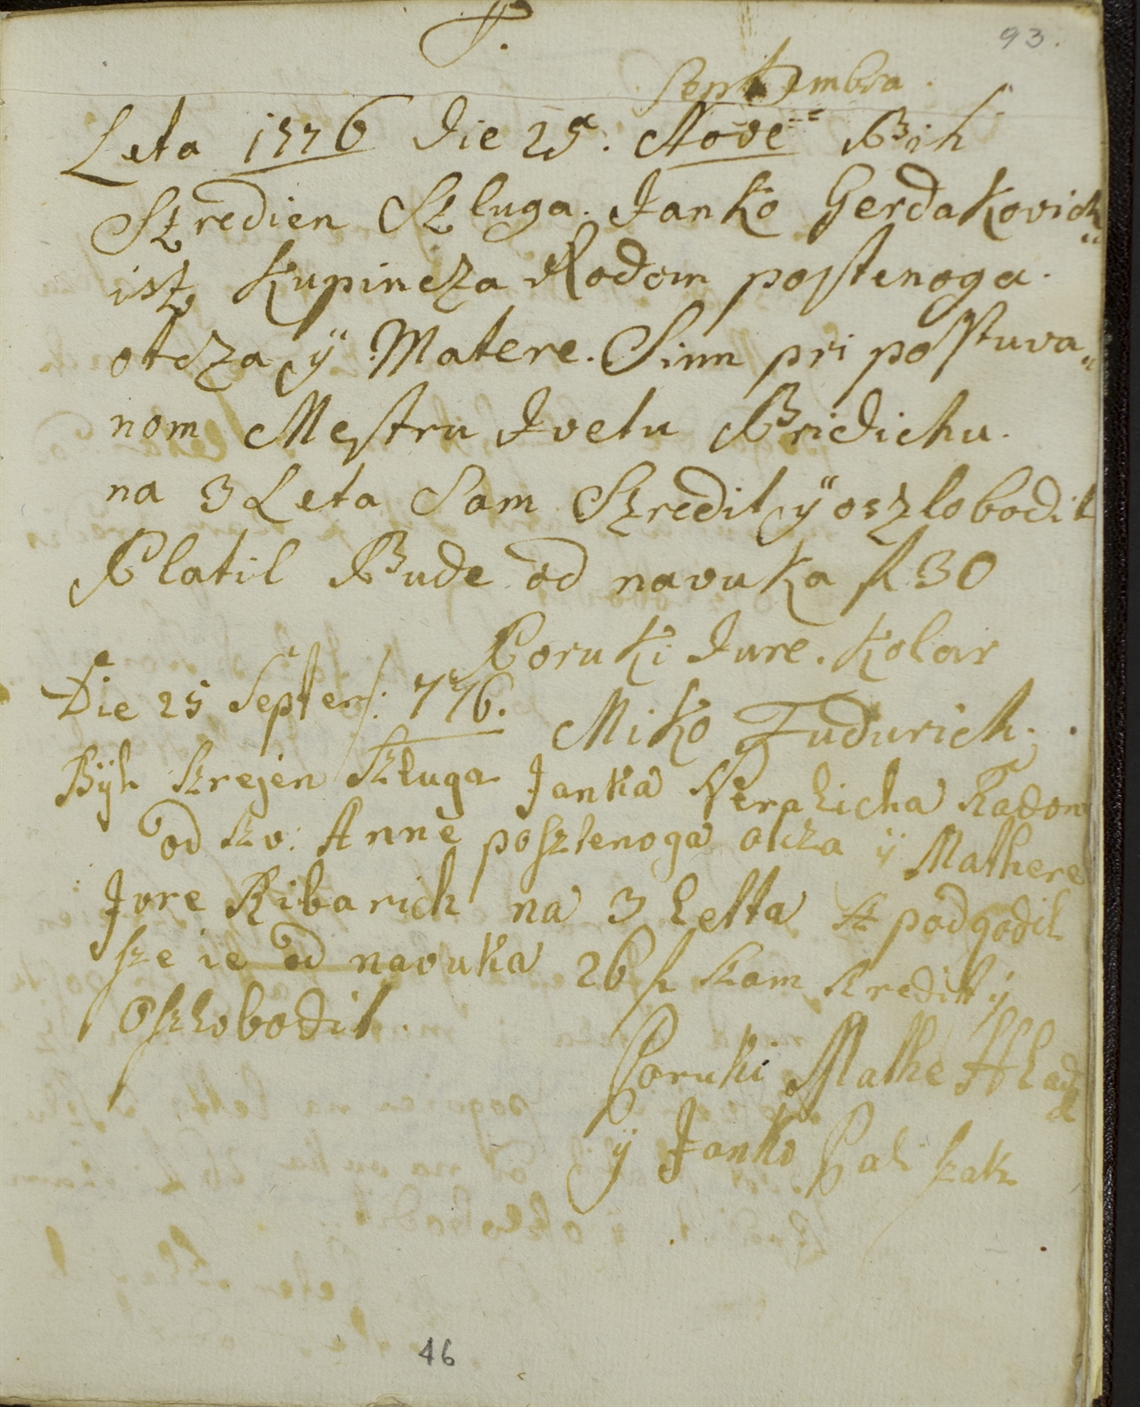 93.
Septembra
Leta 1776 Die 25a. Nove Bih
Szredien Szluga. Janko Gerdakovich
isz Kupincza Rodom postenoga.
otcza ÿ Matere. Sinn pri postuva„
nom Mestru Ivetu Bridichu.
na 3 Leta Sam Szredil ÿ oszlobodil
Platil Bude od navuka f 30
Poruki Jure. Kolar
Die 25 Septem: 776.
Miko Fudurich.
Bÿh Szrejen Szluga Janka Rodom
od Sz v: Anne posztenoga otcza ÿ Mathere
Jvre Ribarich na 3 Letta podgodil
sze ie od navuka 26 f Szam Szredil ÿ
Oszlobodil.
Poruki Mathe
ÿ Janko
46